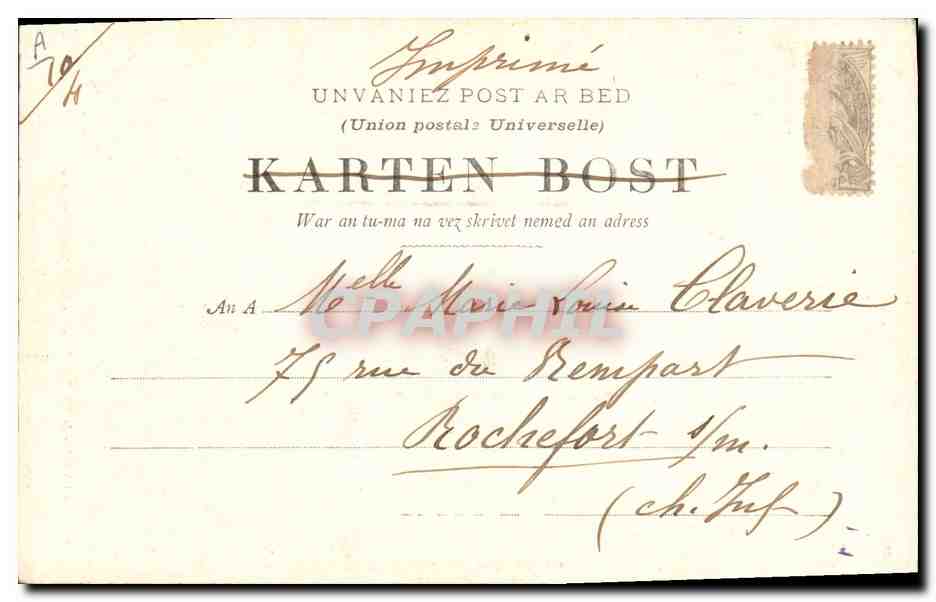 A
70
Imprimé
UNVANIEZ POST AR BED
(Union postale Universelle)
KARTEN BOST
War an tu-ma na vez skrivet nemed an adress
An A Melle Marie Louise Claverie
CPAPHIL
75 rue du Rempart
Rochefort s/m.
(ch. Inf)